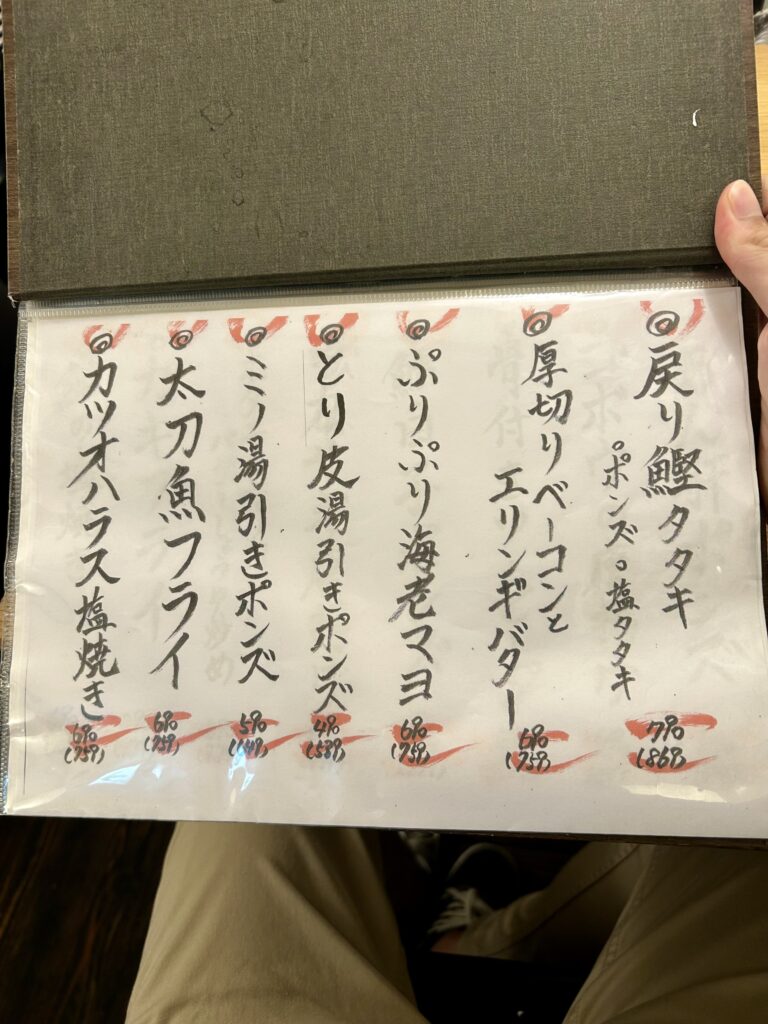 ◎戻り鰹タタキ
○ポンズ○塩タタキ
790
(869)
◎厚切りベーコンと
エリンギバター
690
(759)
◎ぷりぷり海老マヨ
690
(759)
◎とり皮湯引きポンズ
490
(539)
◎ミノ湯引きポンズ
590
(649)
◎太刀魚フライ
690
(759)
◎カツオハラス塩焼き
690
(759)